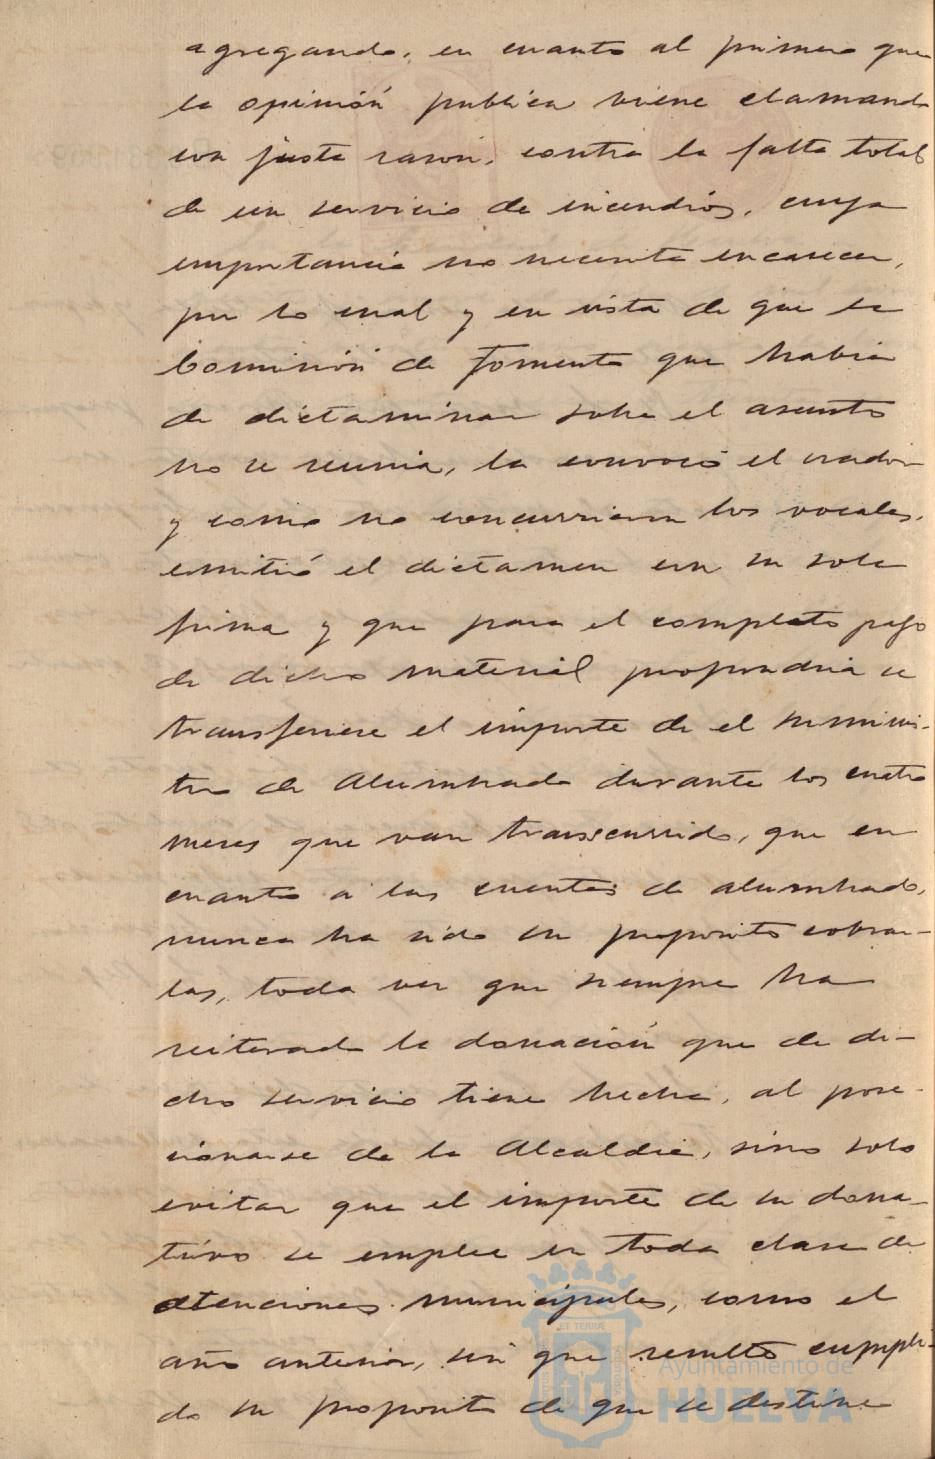 agregando, en cuanto al primero que
la opinión publica viene clamando
con justa razon, contra la falta total
de un servicio de incendios, cuya
importancia no necesita encarecer,
por lo cual y en vista de que la
Comisión de Fomento que habia
de dictaminar sobre el asunto
no se reunia, la convocó el orador
y como no concurrieron los vocales,
emitió el dictamen con su sola
firma y que para el completo pago
de dicho material propondria se
transfiriese el importe de el suminis-
tro de alumbrado durante los cuatro
meses que van transcurrido, que en
cuanto a las cuentas de alumbrado,
nunca ha sido su proposito cobrar-
las, toda vez que siempre ha
reiterado la donación que de di-
cho servicio tiene hecha, al pose-
cionarse de la Alcaldia, sino solo
evitar que el importe de su dona-
tivo se emplee en toda clase de
atenciones municipales, como el
año anterior, sin que resultó cumpli-
do su proposito de que se destine
ET TERRÆ
Ayuntamiento de
HUELVA